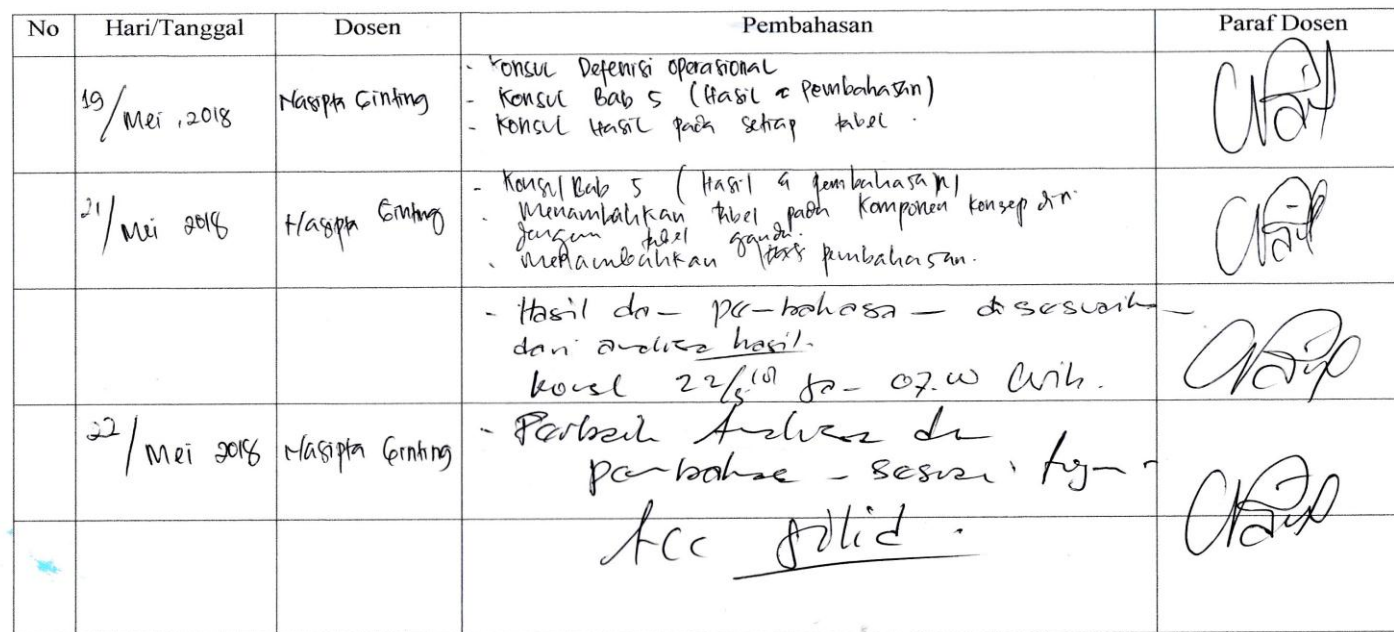 No Hari/Tanggal Dosen Pembahasan Paraf Dosen
19/Mei, 2018 Nasipta Ginting
- Konsul Defenisi Operasional
- Konsul Bab 5 (Hasil & Pembahasan)
- Konsul Hasil pada setiap tabel.
21/Mei 2018 Nasipta Ginting
- Konsul Bab 5 (Hasil & Pembahasan)
- Menambahkan tabel pada Komponen konsep diri
dengan tabel ganda.
- Menambahkan pembahasan.
- Hasil dan pembahasan disesuaikan
dari analisa hasil.
Konsul 22/5
22/Mei 2018 Nasipta Ginting
- Perbaiki Analisa dan
pembahasan - sesuai tujuan
Acc